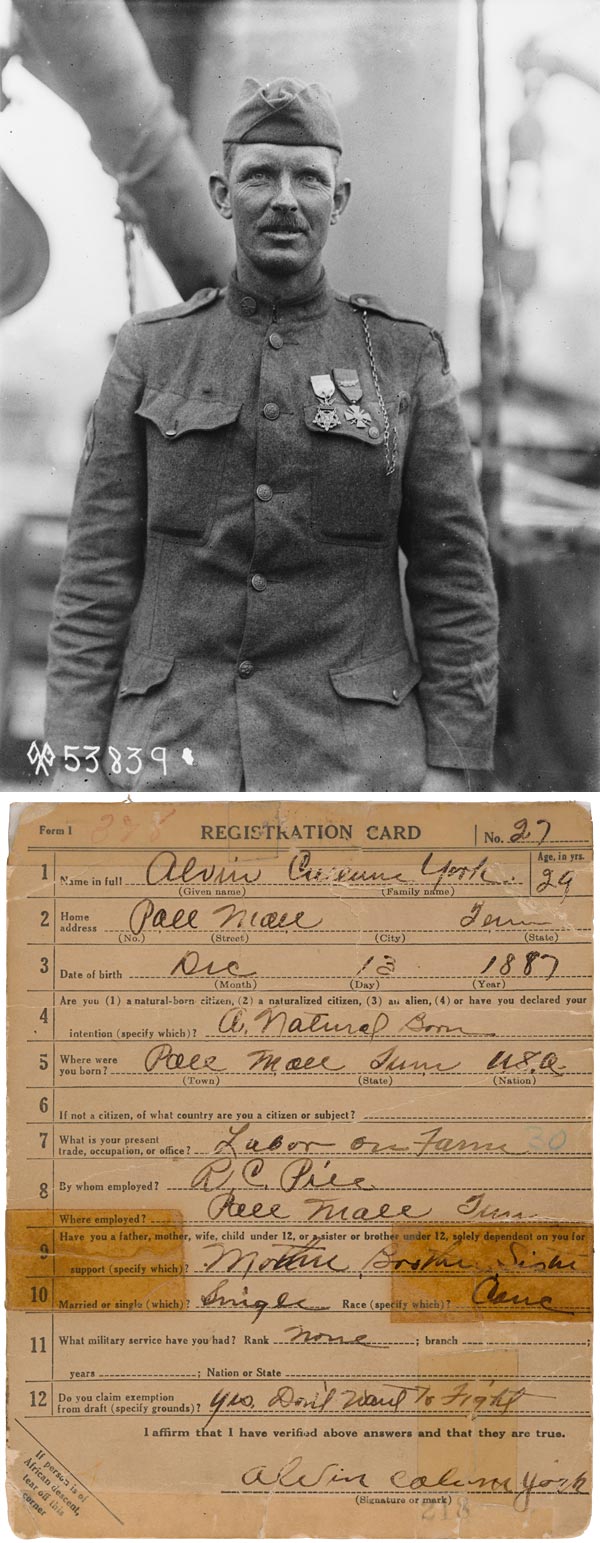 53839
Form 1 328 REGISTRATION CARD No. 27
1 Name in full Alvin Cullum York. Age, in yrs. 29
(Given name) (Family name)
2 Home address Pall Mall Tenn
(No.) (Street) (City) (State)
3 Date of birth Dec 13 1887
(Month) (Day) (Year)
4 Are you (1) a natural-born citizen, (2) a naturalized citizen, (3) an alien, (4) or have you declared your
intention (specify which)? A. Natural Born
5 Where were you born? Pall Mall Tenn U.S.A.
(Town) (State) (Nation)
6 If not a citizen, of what country are you a citizen or subject?
7 What is your present trade, occupation, or office? Labor on Farm 30
8 By whom employed? R. C. Pile
Where employed? Pall Mall Tenn
9 Have you a father, mother, wife, child under 12, or a sister or brother under 12, solely dependent on you for
support (specify which)? Mother, Brother Sister
10 Married or single (which)? Single Race (specify which)?
11 What military service have you had? Rank none ; branch ;
years ; Nation or State
12 Do you claim exemption from draft (specify grounds)? Yes. Don't Want To Fight
I affirm that I have verified above answers and that they are true.
Alvin Cullum York
(Signature or mark)
If person is of
African descent,
tear off this
corner